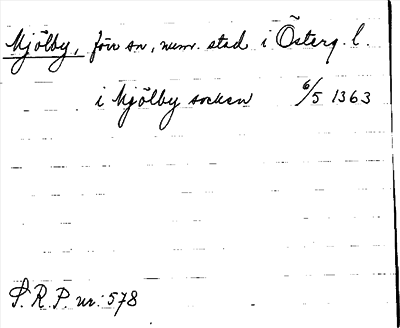 Mjölby, förr sn, numr. stad i Österg. l.
i Mjölby socken 6/5 1363
S.R.P. nr: 578